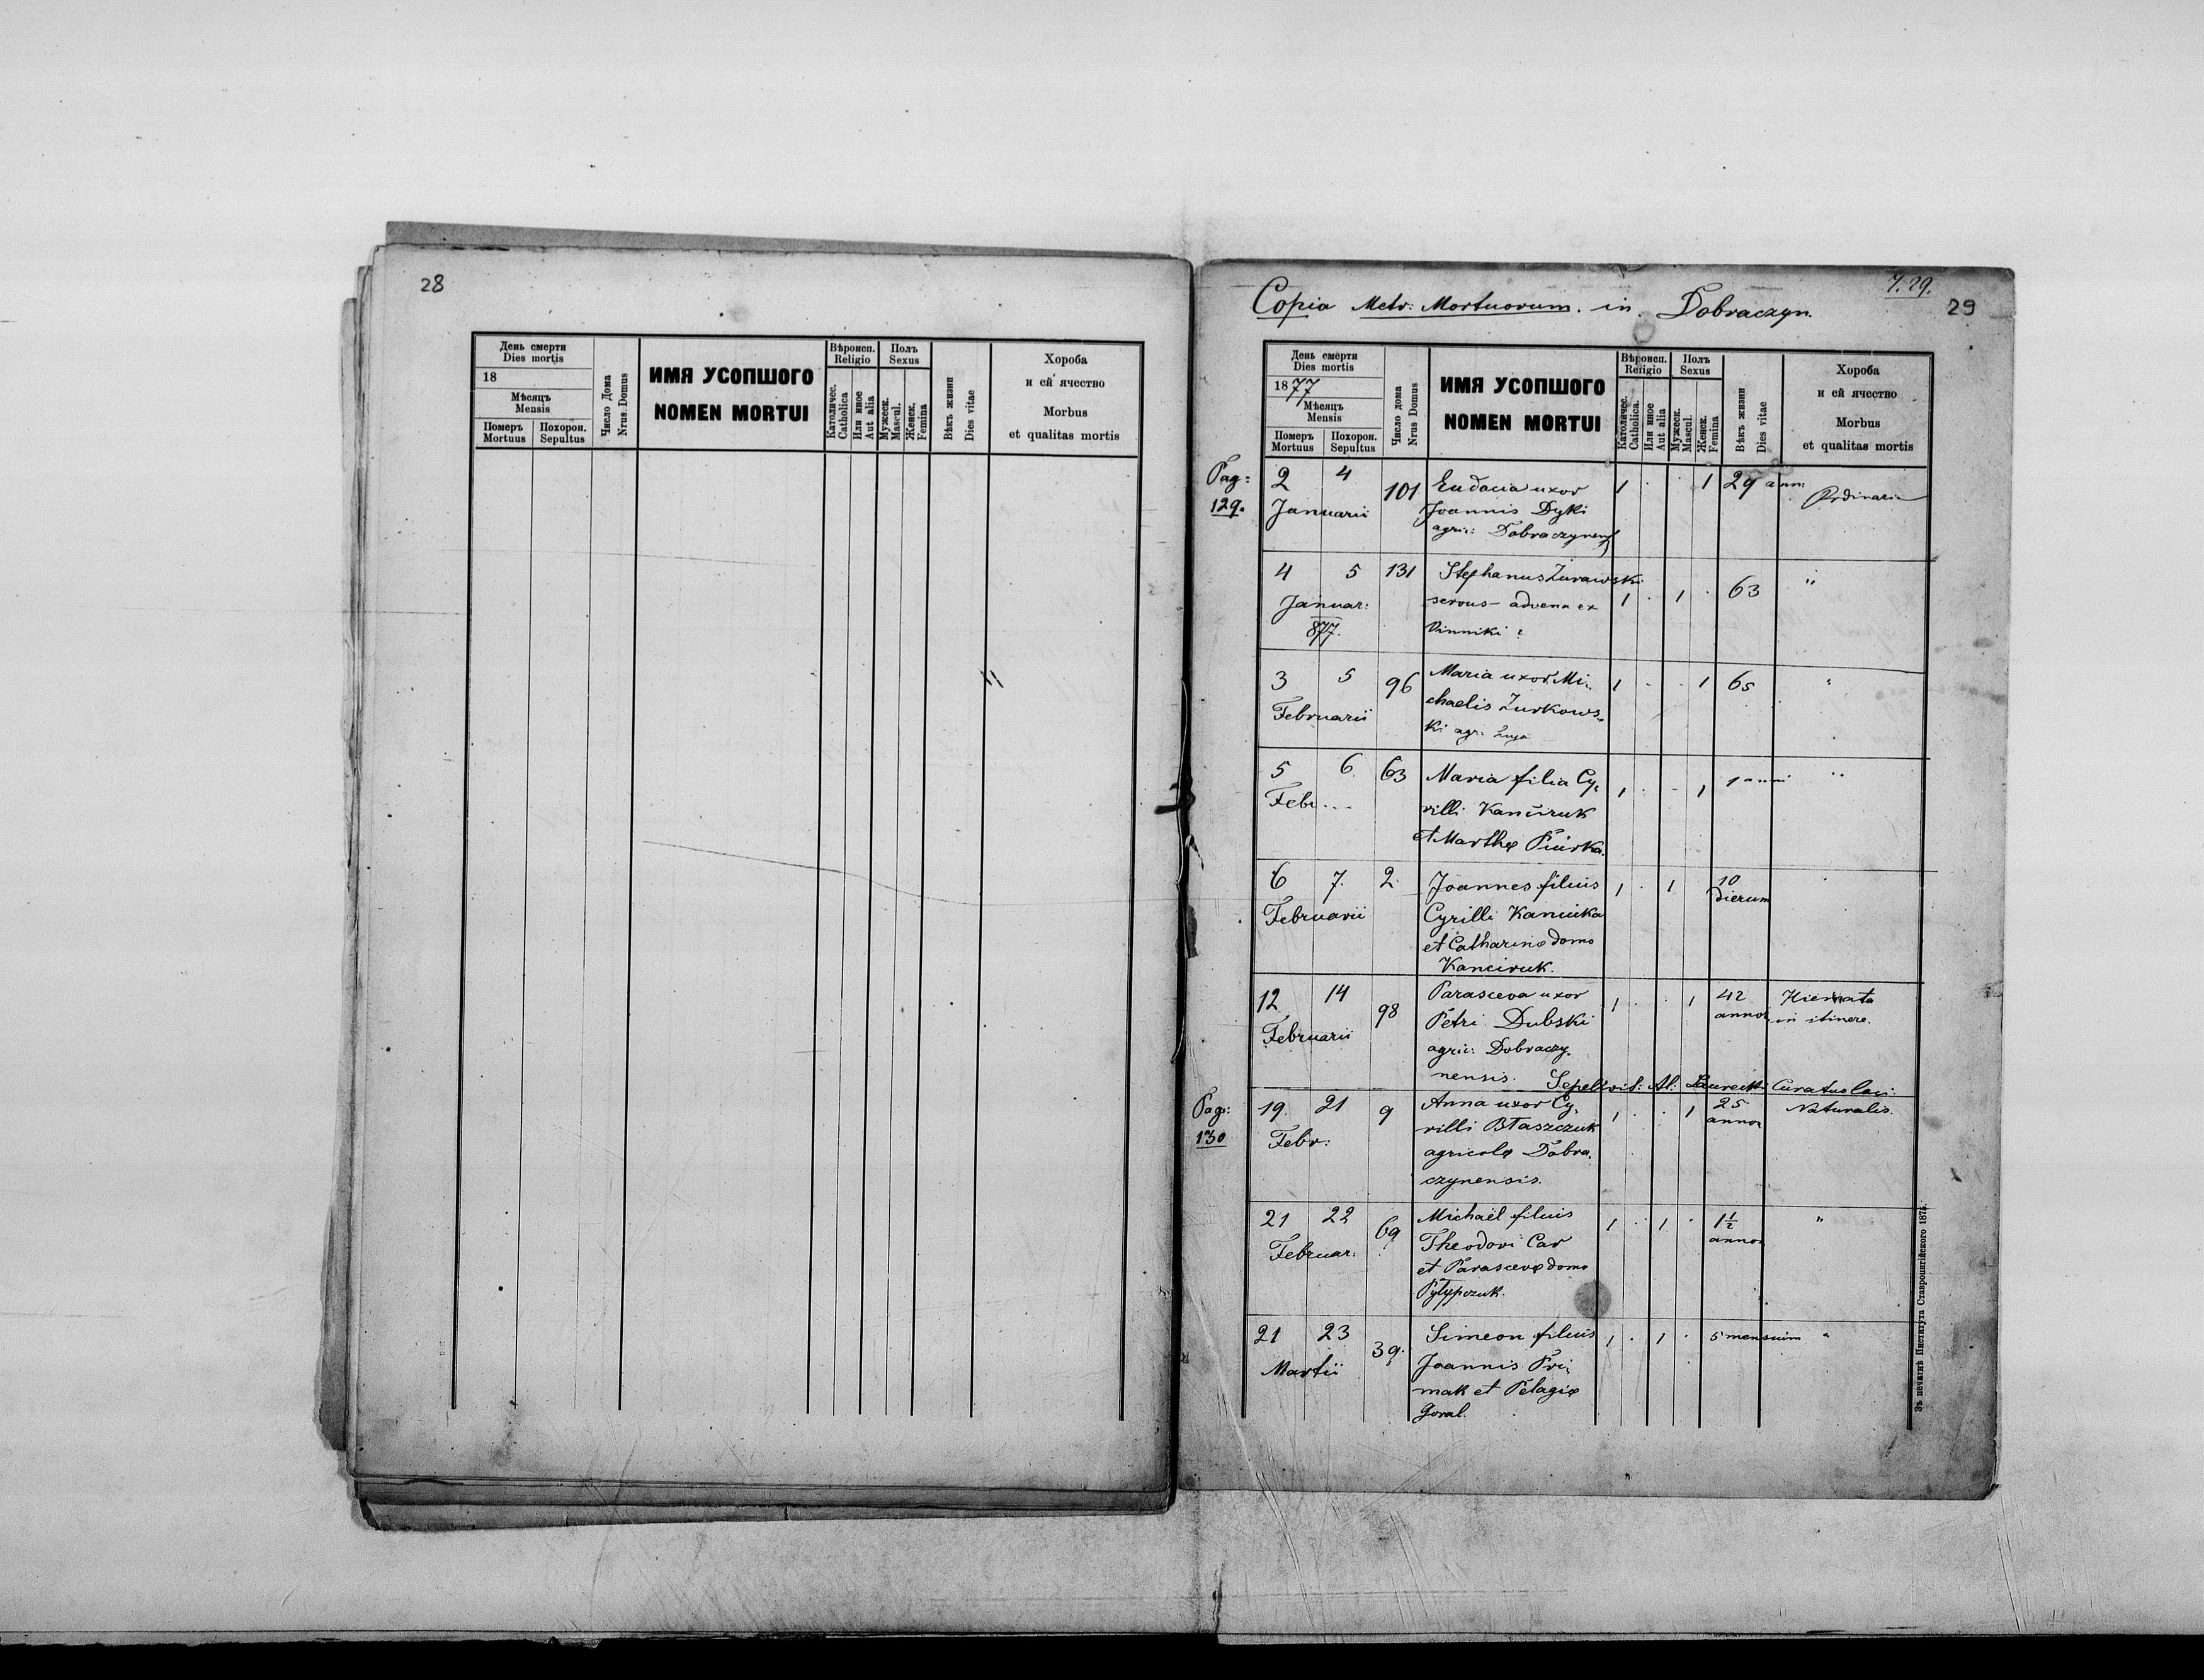 28
День смерти
Dies mortis
18
Мѣсяцъ
Mensis
Померъ
Mortuus
Похорон.
Sepultus
Число Дома
Nrus Domus
ИМЯ УСОПШОГО
NOMEN MORTUI
Вѣроисп.
Religio
Католичес.
Catholica
Или иное
Aut alia
Полъ
Sexus
Мужеск.
Mascul.
Женск.
Femina
Вѣкъ жизни
Dies vitae
Хороба
и ей ячество
Morbus
et qualitas mortis
Copia Metr: Mortuorum. in. Dobraczyn.
29
День смерти
Dies mortis
1877
Мѣсяцъ
Mensis
Померъ
Mortuus
Похорон.
Sepultus
Число дома
Nrus Domus
ИМЯ УСОПШОГО
NOMEN MORTUI
Вѣроисп.
Religio
Католичес.
Catholica.
Или иное
Aut alia
Полъ
Sexus
Мужеск.
Mascul.
Женск.
Femina
Вѣкъ жизни
Dies vitae
Хороба
и ей ячество
Morbus
et qualitas mortis
Pag:
129.
2 4 101 Eudocia uxor 1 . . 1 29 ann: Ordinaria
Januarii Joannis Dyki
agric: Dobraczynens
4 5 131 Stephanus Żurawski
Januar: servus - advena ex 1 . 1 . 63 "
877. Vinniki
3 5 96 Maria uxor Mi- 1 . . 1 65 "
Februarii chaelis Żurkows-
ki agr.
5 6. 63 Maria filia Cy- 1 . . 1 1 anni "
Febr... rilli Kanciruk
et Marthæ
6 7. 2. Joannes filius 1 . 1 10
dierum
Februarii Cyrilli Kaniuka
et Catharinæ domo
Kanciruk.
12 14 98 Parasceva uxor 1 . . 1 42
annor
Februarii Petri Dubski
in itinere.
agric: Dobraczy-
nensis. Sepelivit: Al: Curatus loci.
Pag:
130
19. 21 9 Anna uxor Cy- 1 . . 1 25
annor Naturalis.
Febr: rilli Błaszczuk
agricolæ Dobra-
czynensis.
21 22 69 Michaël filius 1 . 1 . 1½
annor "
Februar: Theodori Car
et Parascevæ domo
Pyłypczuk.
21 23 39. Simeon filius 1 . 1 . 5 mensium "
Martii Joannis Pri-
mak et Pelagiæ
Goral.
Зъ печатнѣ Института Ставропигійского 1875.